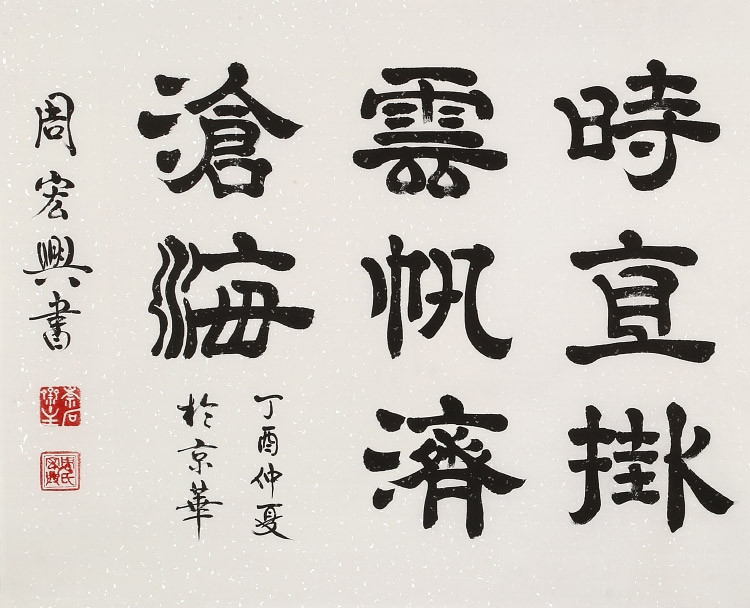 時直掛
雲帆濟
滄海
丁酉仲夏
於京華
周宏興書